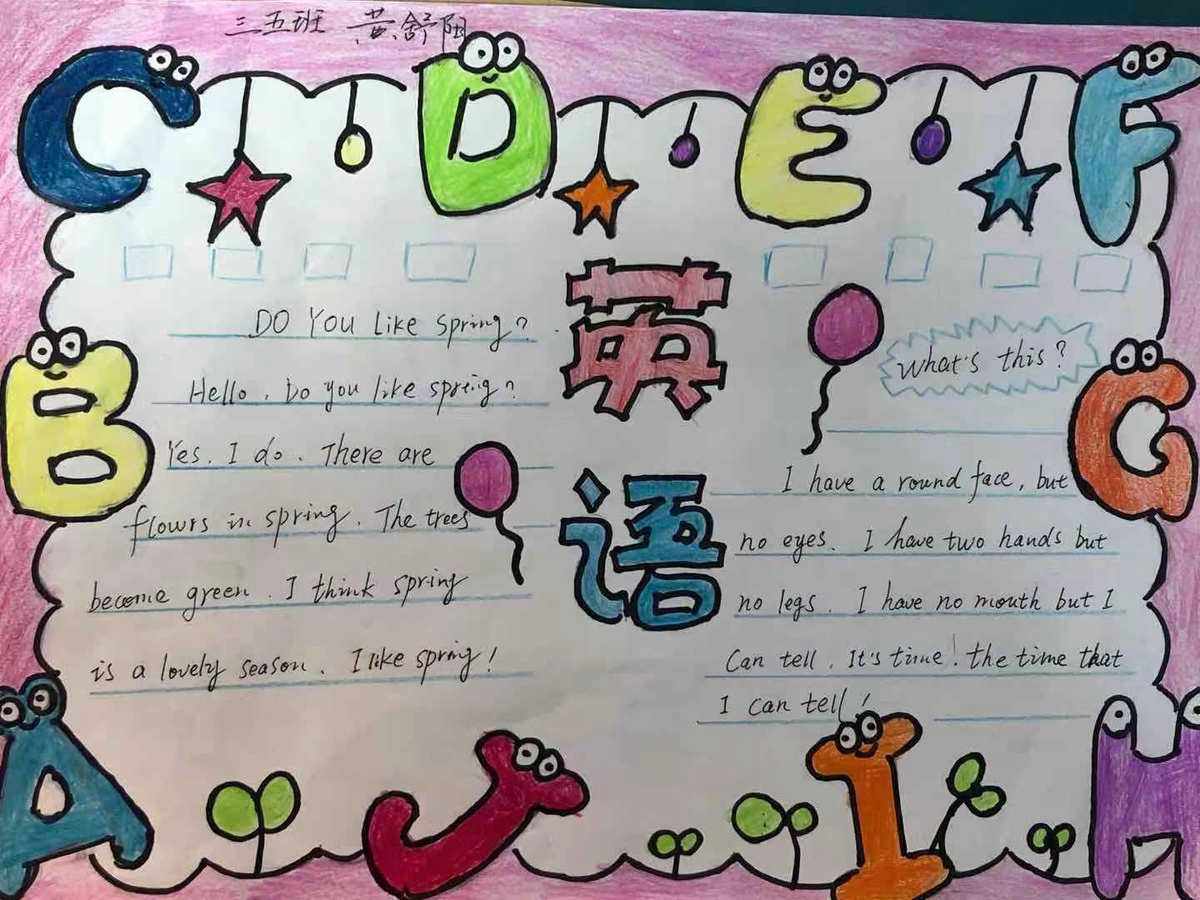 三五班 黄舒阳
C D E F
英
语
DO YOU Like Spring?
Hello. Do you like spreig?
Yes. I do. There are
flowrs in spring. The trees
become green. I think spring
is a lovely season. I like spring!
What's this?
I have a round face, but
no eyes. I have two hands but
no legs. I have no mouth but I
Can tell. It's time! the time that
I can tell!
B
G
A J I H